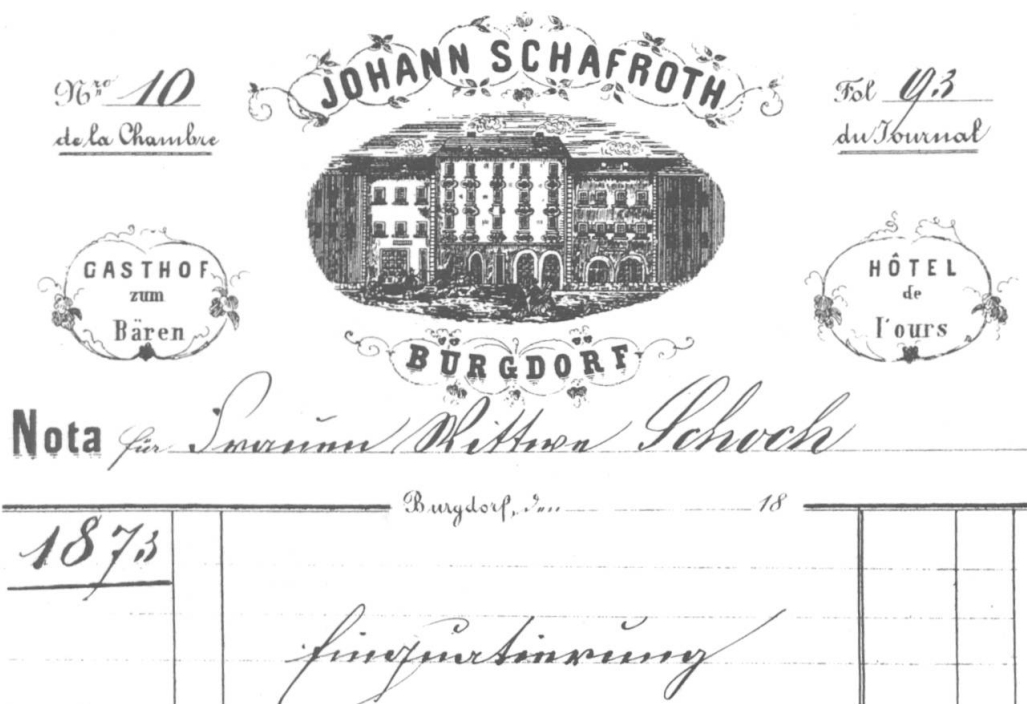 JOHANN SCHAFROTH
Nro 10
de la Chambre
Fol 93
du Journal
GASTHOF
zum
Bären
HÔTEL
de
l'ours
BURGDORF
Nota für Frauen Wittwe Schoch
Burgdorf, den 18
1873
Einquatierung